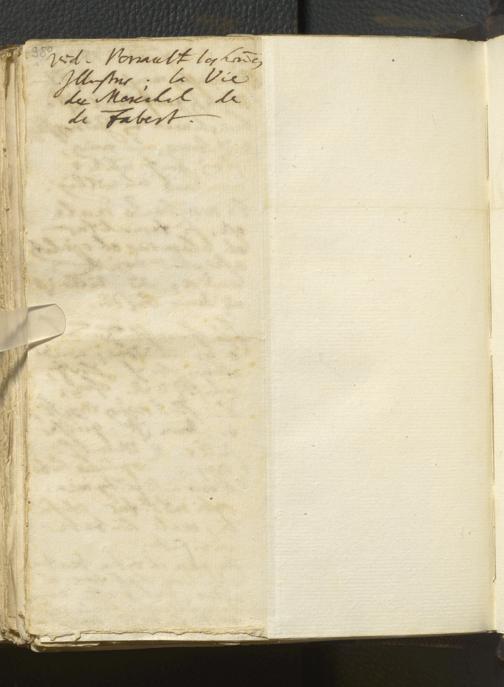 vid. Perrault les hom̃es
Illustres: la Vie
du Maréchal de
de Fabert.